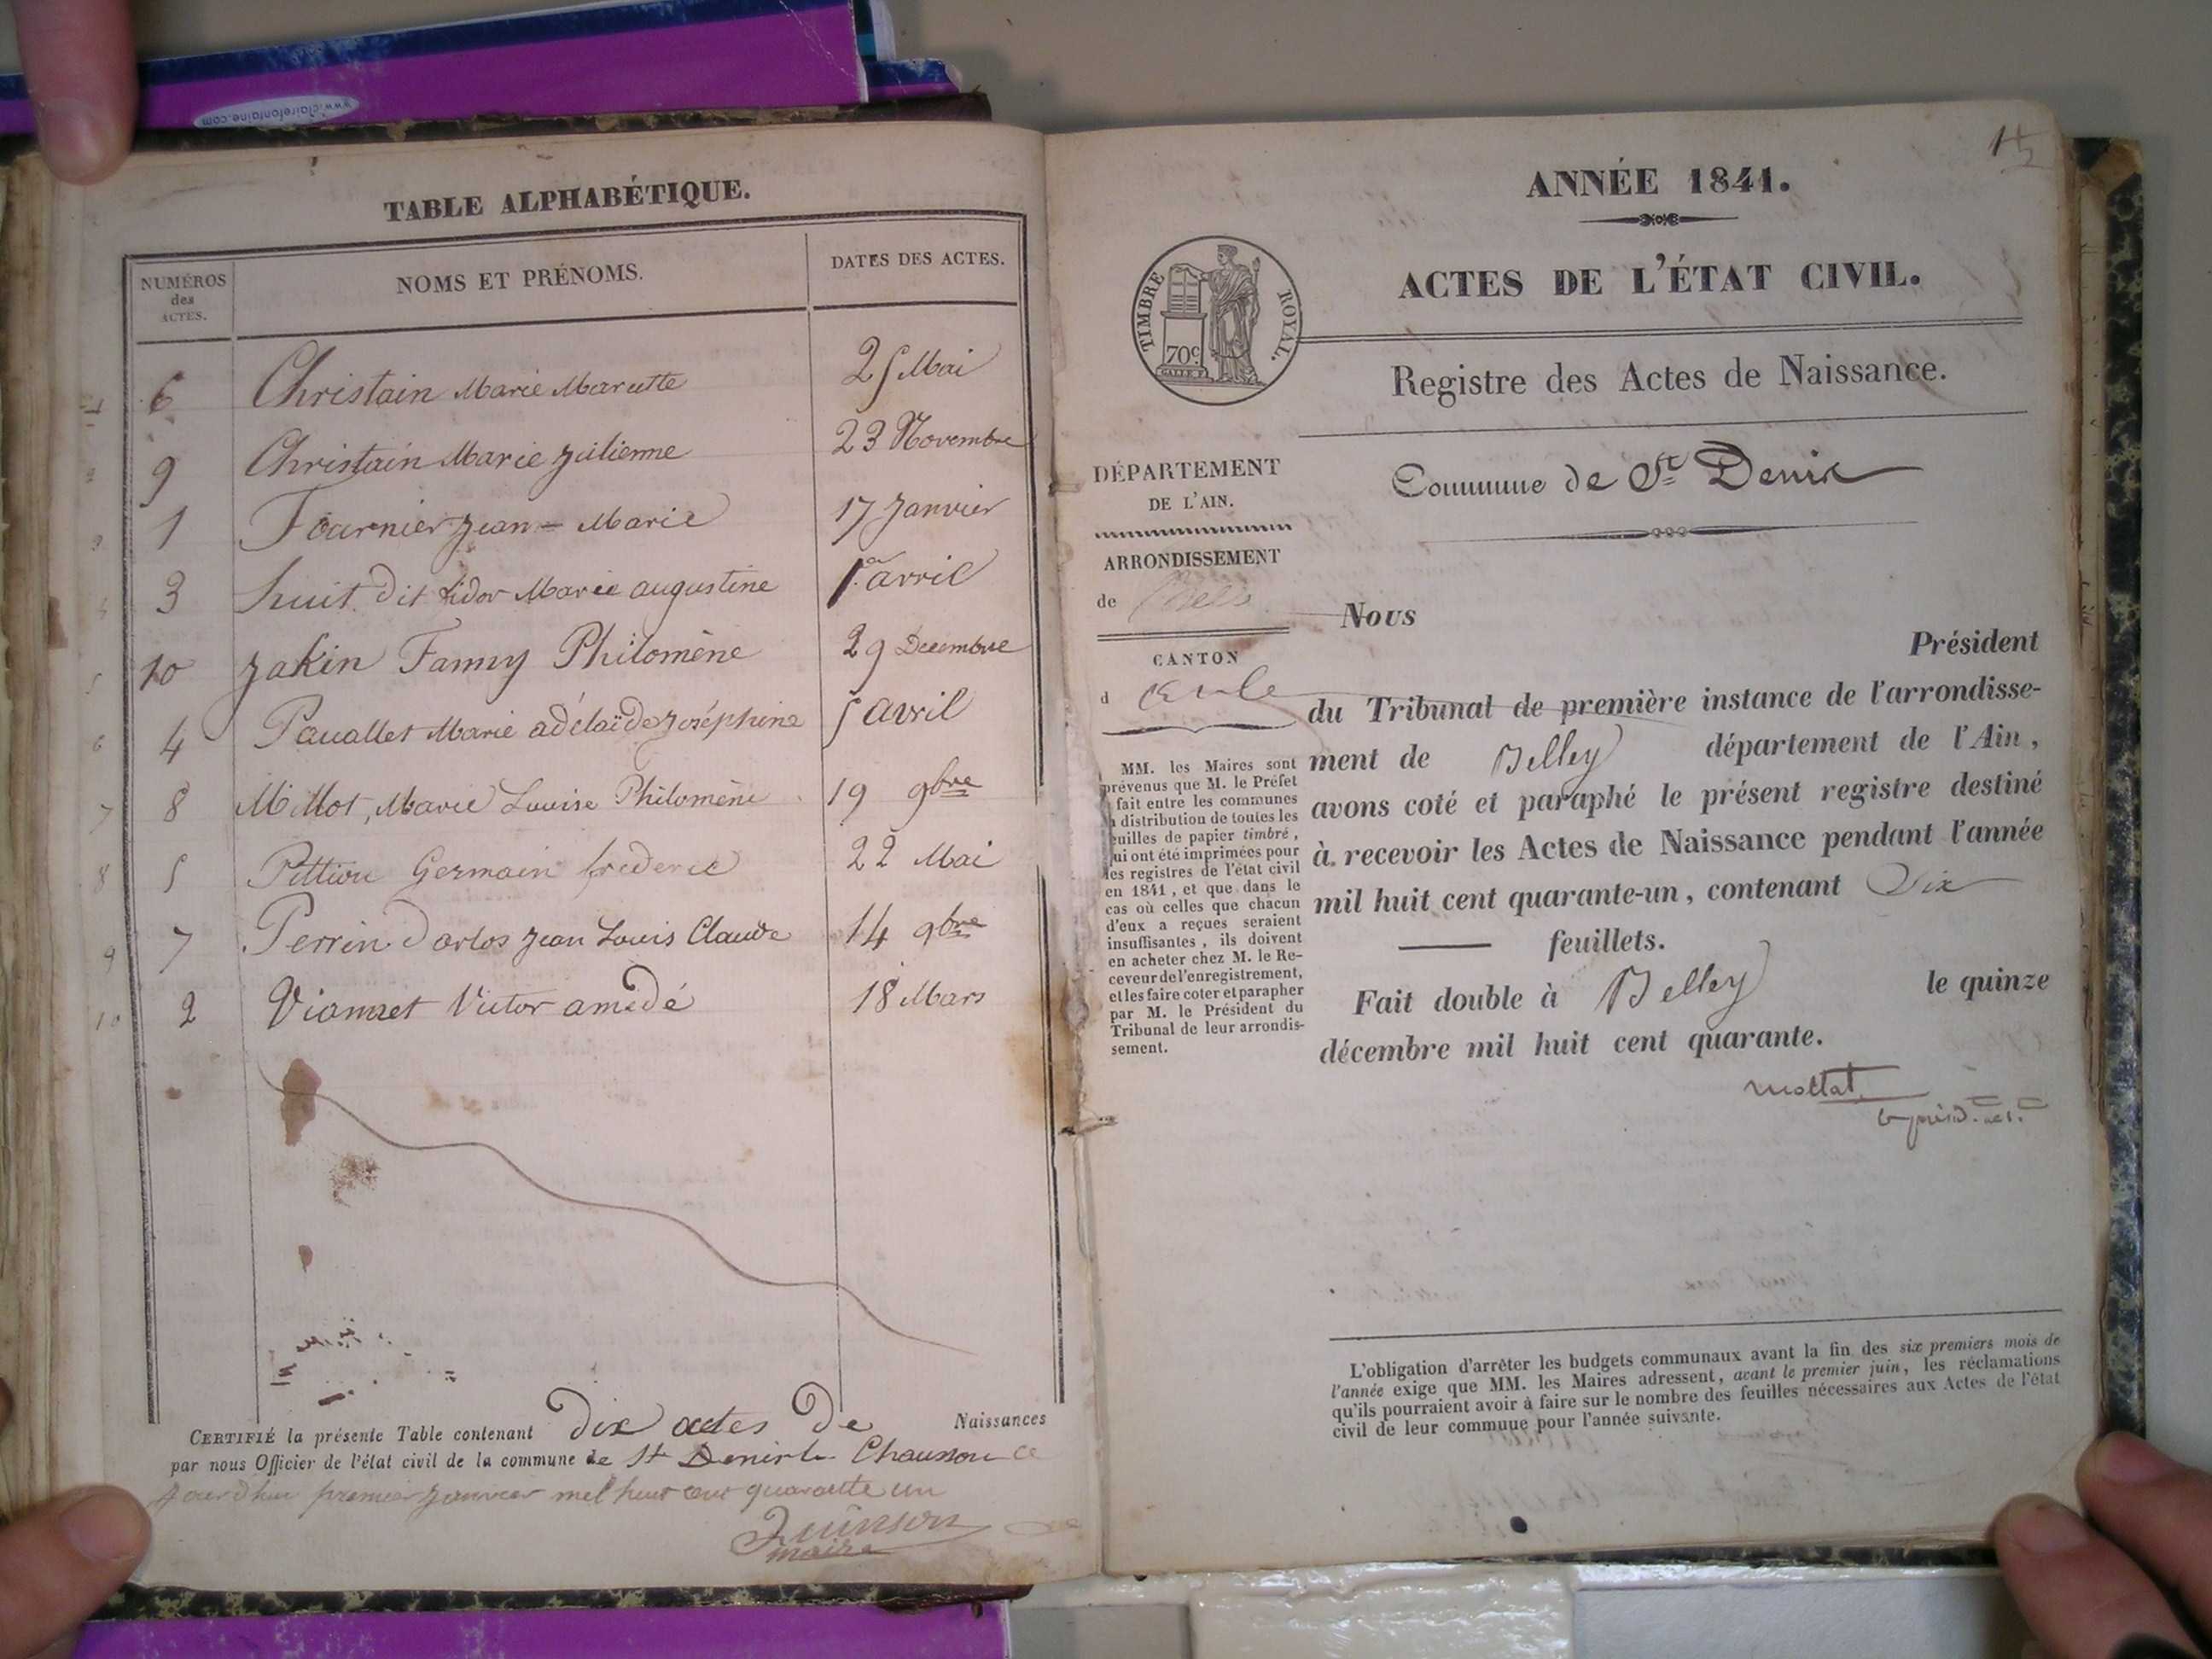 www.clairefontaine.com
TABLE ALPHABÉTIQUE.
NUMÉROS des ACTES. NOMS ET PRÉNOMS. DATES DES ACTES.
6 Christain Marie Mariette 25 Mai
9 Christain Marie Julienne 23 Novembre
1 Fournier Jean-Marie 17 Janvier
3 huit dit Lidor Marie augustine 1er avril
10 Jakin Fanny Philomène 29 Decembre
4 Pauallet Marie adélaïde Joséphine 5 avril
8 Millot, Marie Louise Philomène 19 9bre
5 Pittion Germain frederic 22 Mai
7 Perrin Darlos Jean Louis Claude 14 9bre
2 Viannet Victor amédé 18 Mars
CERTIFIÉ la présente Table contenant dix actes de Naissances
par nous Officier de l'état civil de la commune de St Denis le Chausson ce
jourdhui premier Janvier mil huit cent quarante un
Quinson
maire
ANNÉE 1841.
ACTES DE L'ÉTAT CIVIL.
TIMBRE ROYAL.
70c
Registre des Actes de Naissance.
Commune de St Denis
DÉPARTEMENT
DE L'AIN.
ARRONDISSEMENT
de
CANTON
d
MM. les Maires sont
prévenus que M. le Préfet
fait entre les communes
la distribution de toutes les
feuilles de papier timbré,
qui ont été imprimées pour
les registres de l'état civil
en 1841, et que dans le
cas où celles que chacun
d'eux a reçues seraient
insuffisantes, ils doivent
en acheter chez M. le Re-
ceveur de l'enregistrement,
et les faire coter et parapher
par M. le Président du
Tribunal de leur arrondis-
sement.
Nous
Président
du Tribunal de première instance de l'arrondisse-
ment de Belley département de l'Ain,
avons coté et paraphé le présent registre destiné
à recevoir les Actes de Naissance pendant l'année
mil huit cent quarante-un, contenant Dix
feuillets.
Fait double à Belley le quinze
décembre mil huit cent quarante.
mollat
L'obligation d'arrêter les budgets communaux avant la fin des six premiers mois de
l'année exige que MM. les Maires adressent, avant le premier juin, les réclamations
qu'ils pourraient avoir à faire sur le nombre des feuilles nécessaires aux Actes de l'état
civil de leur commune pour l'année suivante.